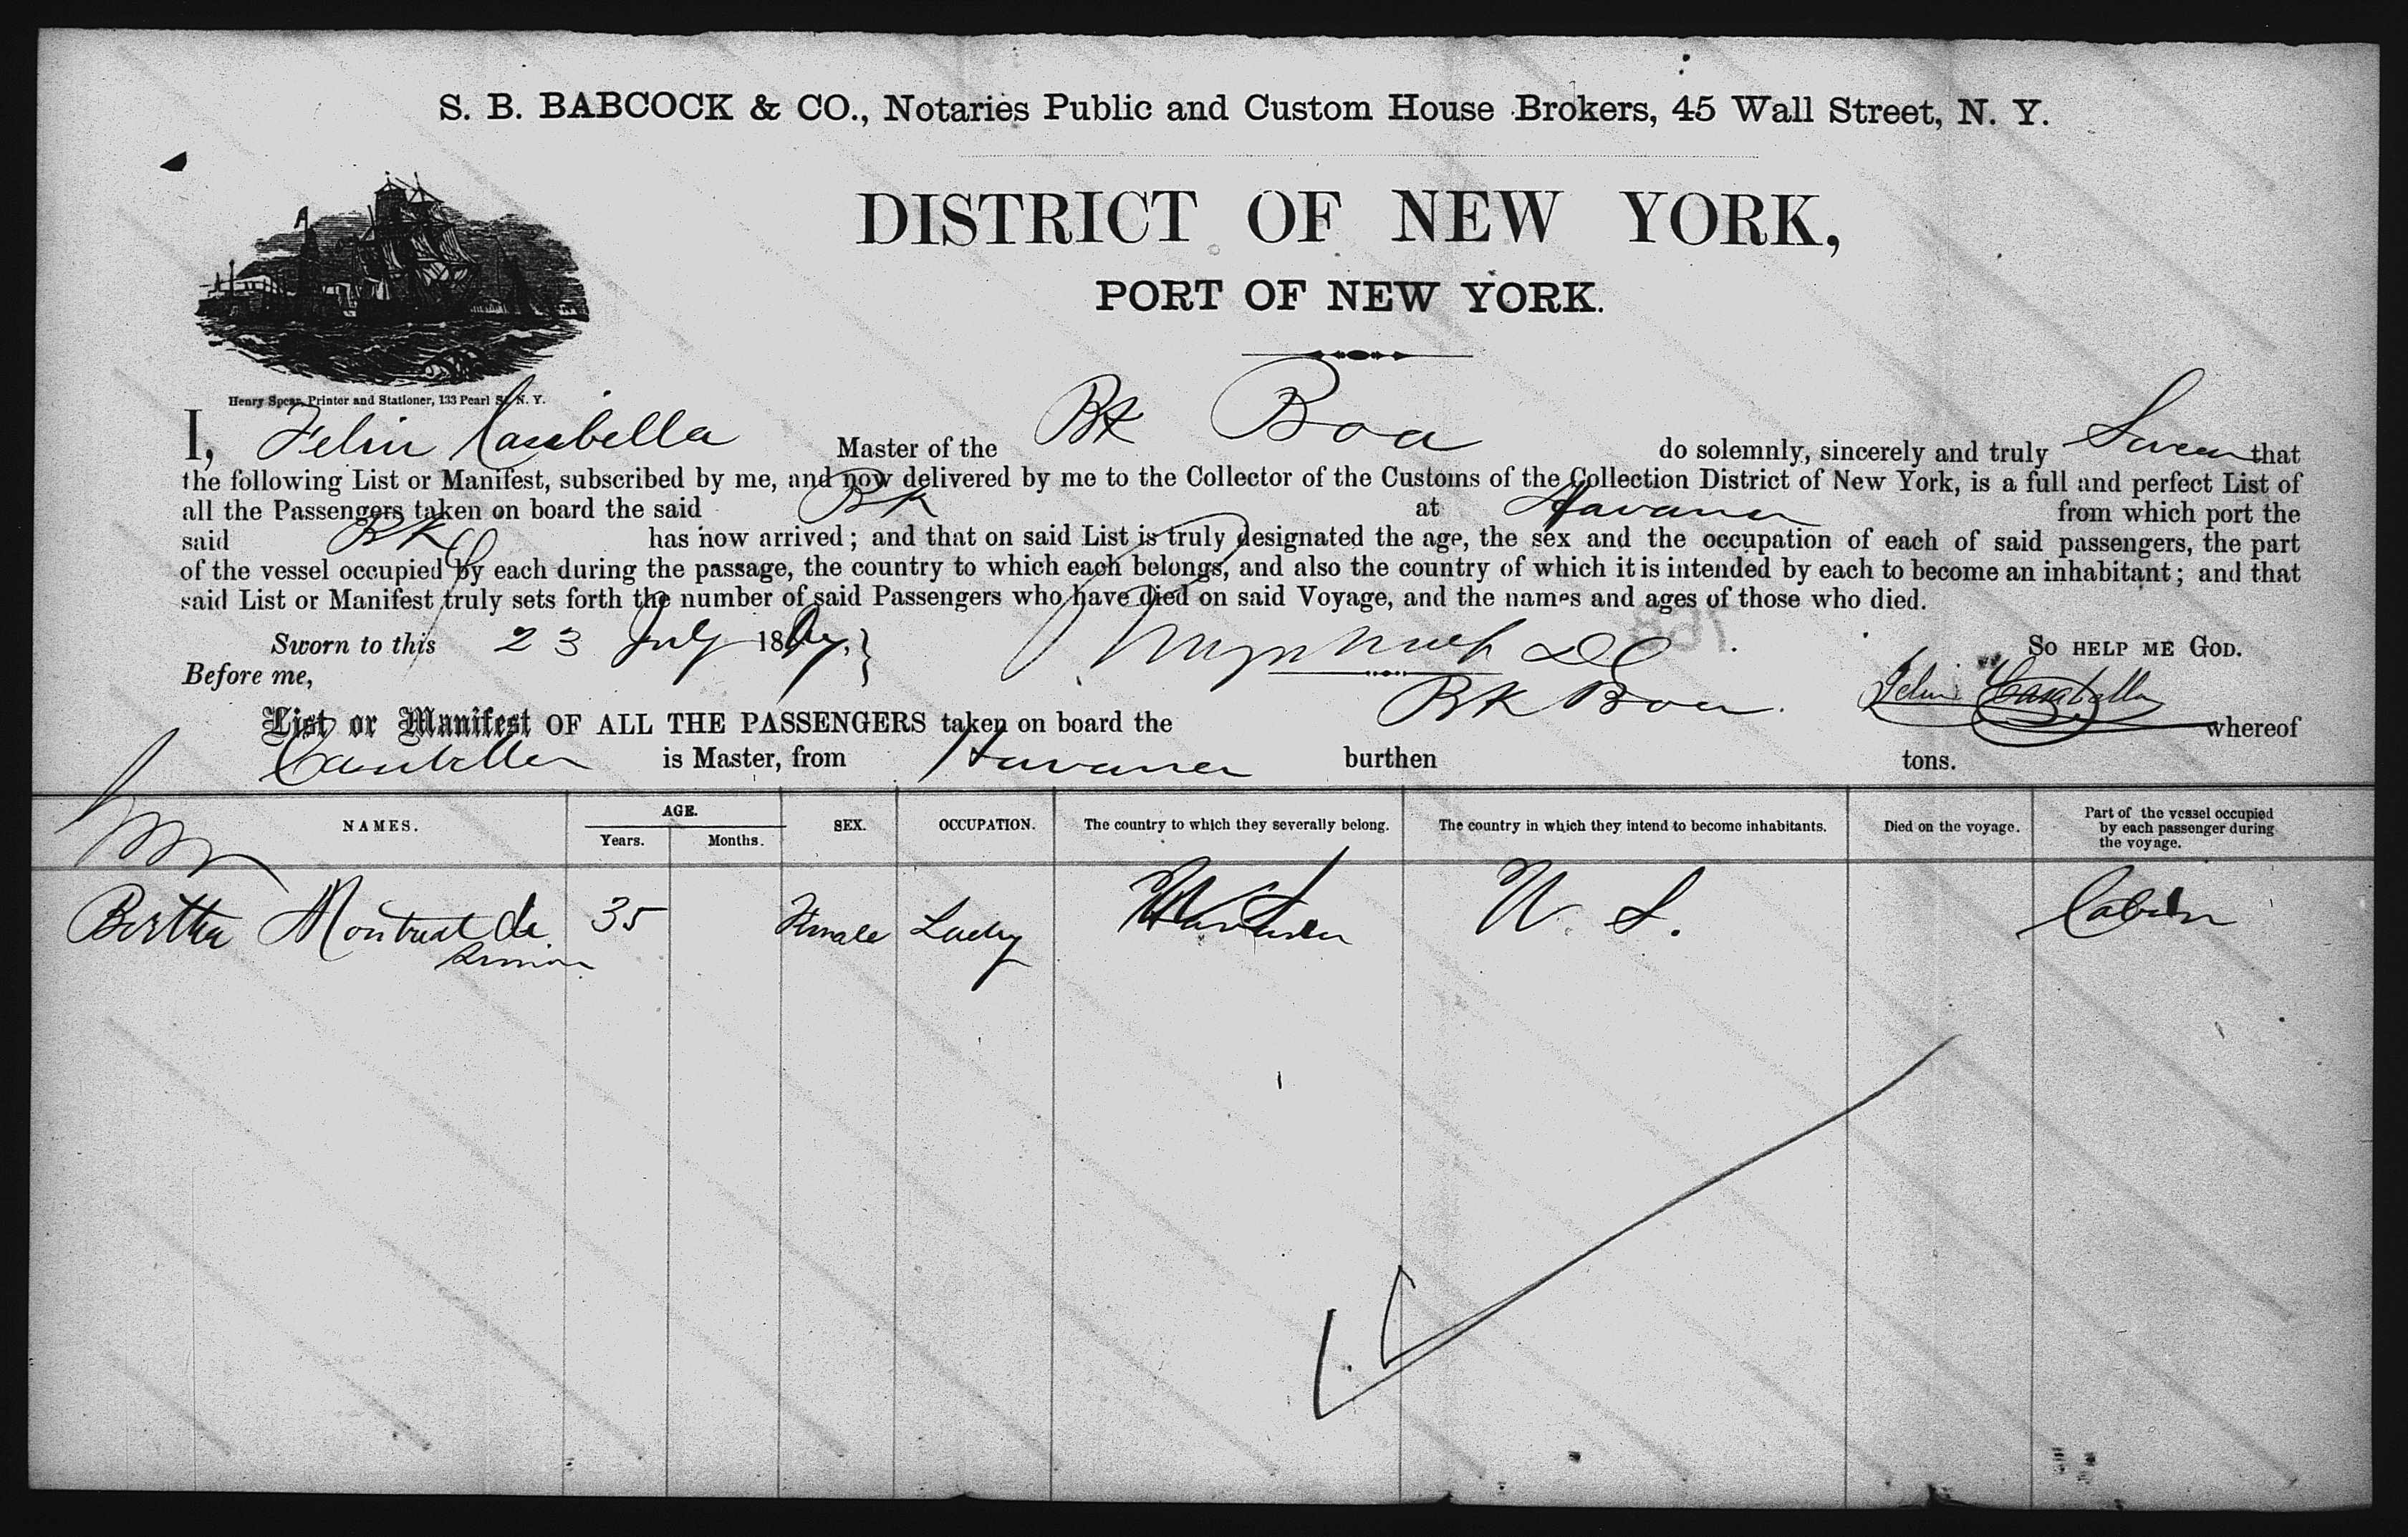 S. B. BABCOCK & CO., Notaries Public and Custom House Brokers, 45 Wall Street, N. Y.
DISTRICT OF NEW YORK,
PORT OF NEW YORK.
Henry Spear, Printer and Stationer, 133 Pearl St. N. Y.
I, Master of the Bk Boa do solemnly, sincerely and truly Swear that
the following List or Manifest, subscribed by me, and now delivered by me to the Collector of the Customs of the Collection District of New York, is a full and perfect List of
all the Passengers taken on board the said Bk at Havana from which port the
said Bk has now arrived; and that on said List is truly designated the age, the sex and the occupation of each of said passengers, the part
of the vessel occupied by each during the passage, the country to which each belongs, and also the country of which it is intended by each to become an inhabitant; and that
said List or Manifest truly sets forth the number of said Passengers who have died on said Voyage, and the names and ages of those who died.
Sworn to this 23 July 18 SO HELP ME GOD.
Before me,
List or Manifest OF ALL THE PASSENGERS taken on board the Bk Boa whereof
is Master, from Havana burthen tons.
NAMES. AGE. SEX. OCCUPATION. The country to which they severally belong. The country in which they intend to become inhabitants. Died on the voyage. Part of the vessel occupied by each passenger during the voyage.
Years. Months.
Bertha de 35 Female Lady U. S. Cabin